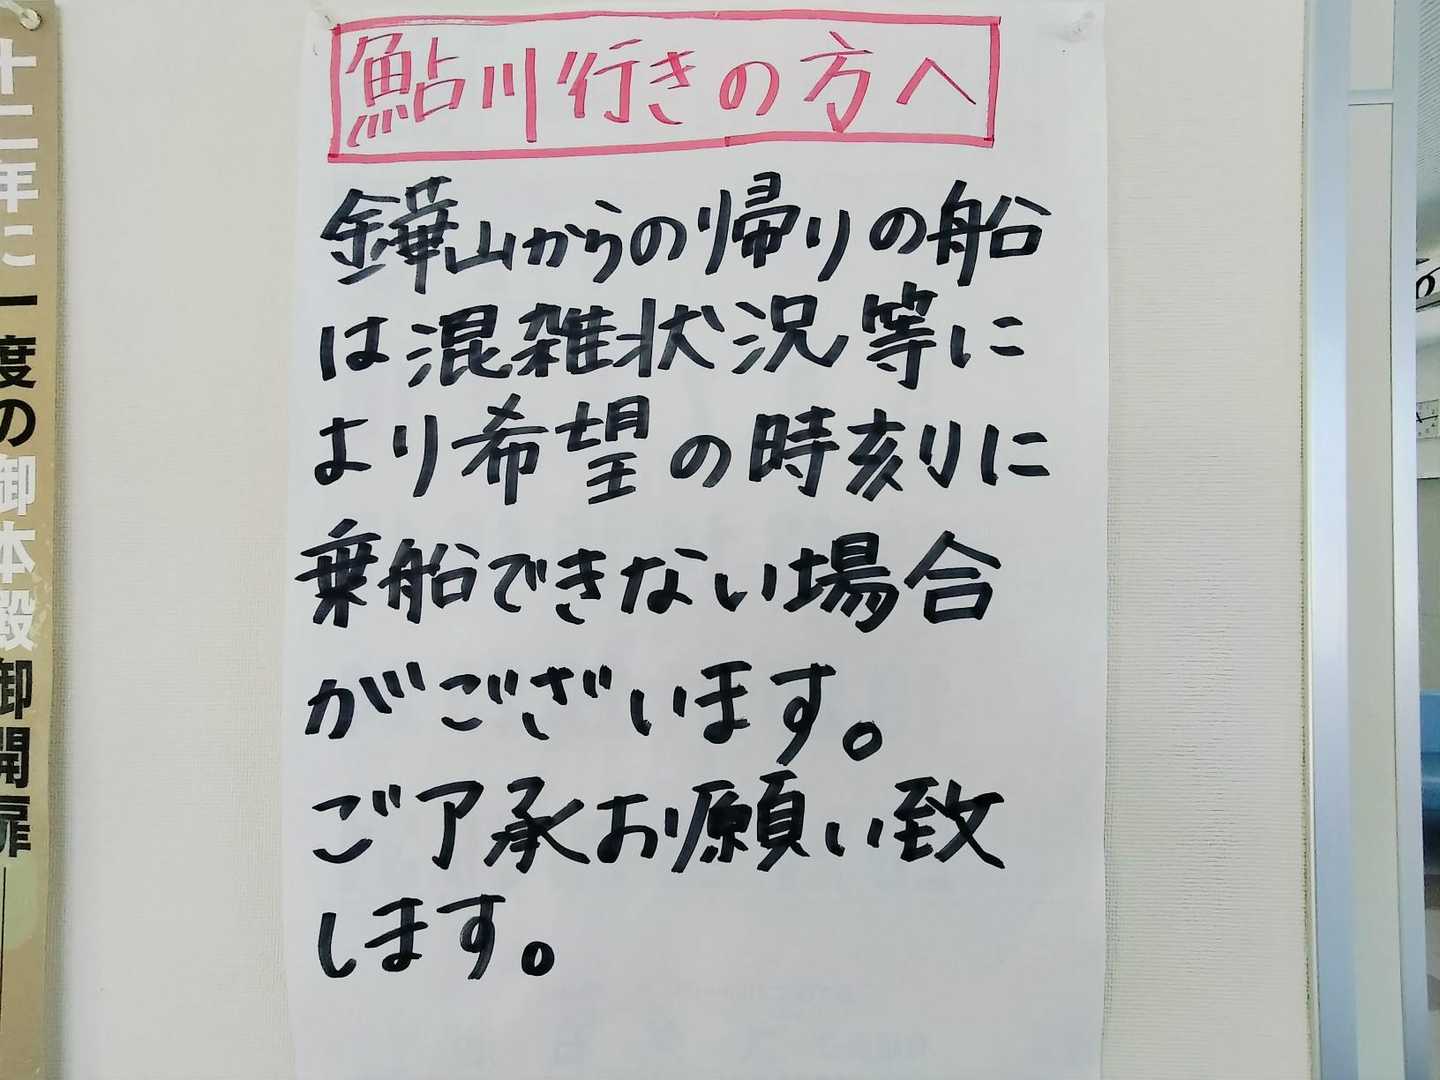 鮎川行きの方へ
金華山からの帰りの船
は混雑状況等に
より希望の時刻に
乗船できない場合
がございます。
ご了承お願い致
します。
十二年に一度の御本殿御開扉